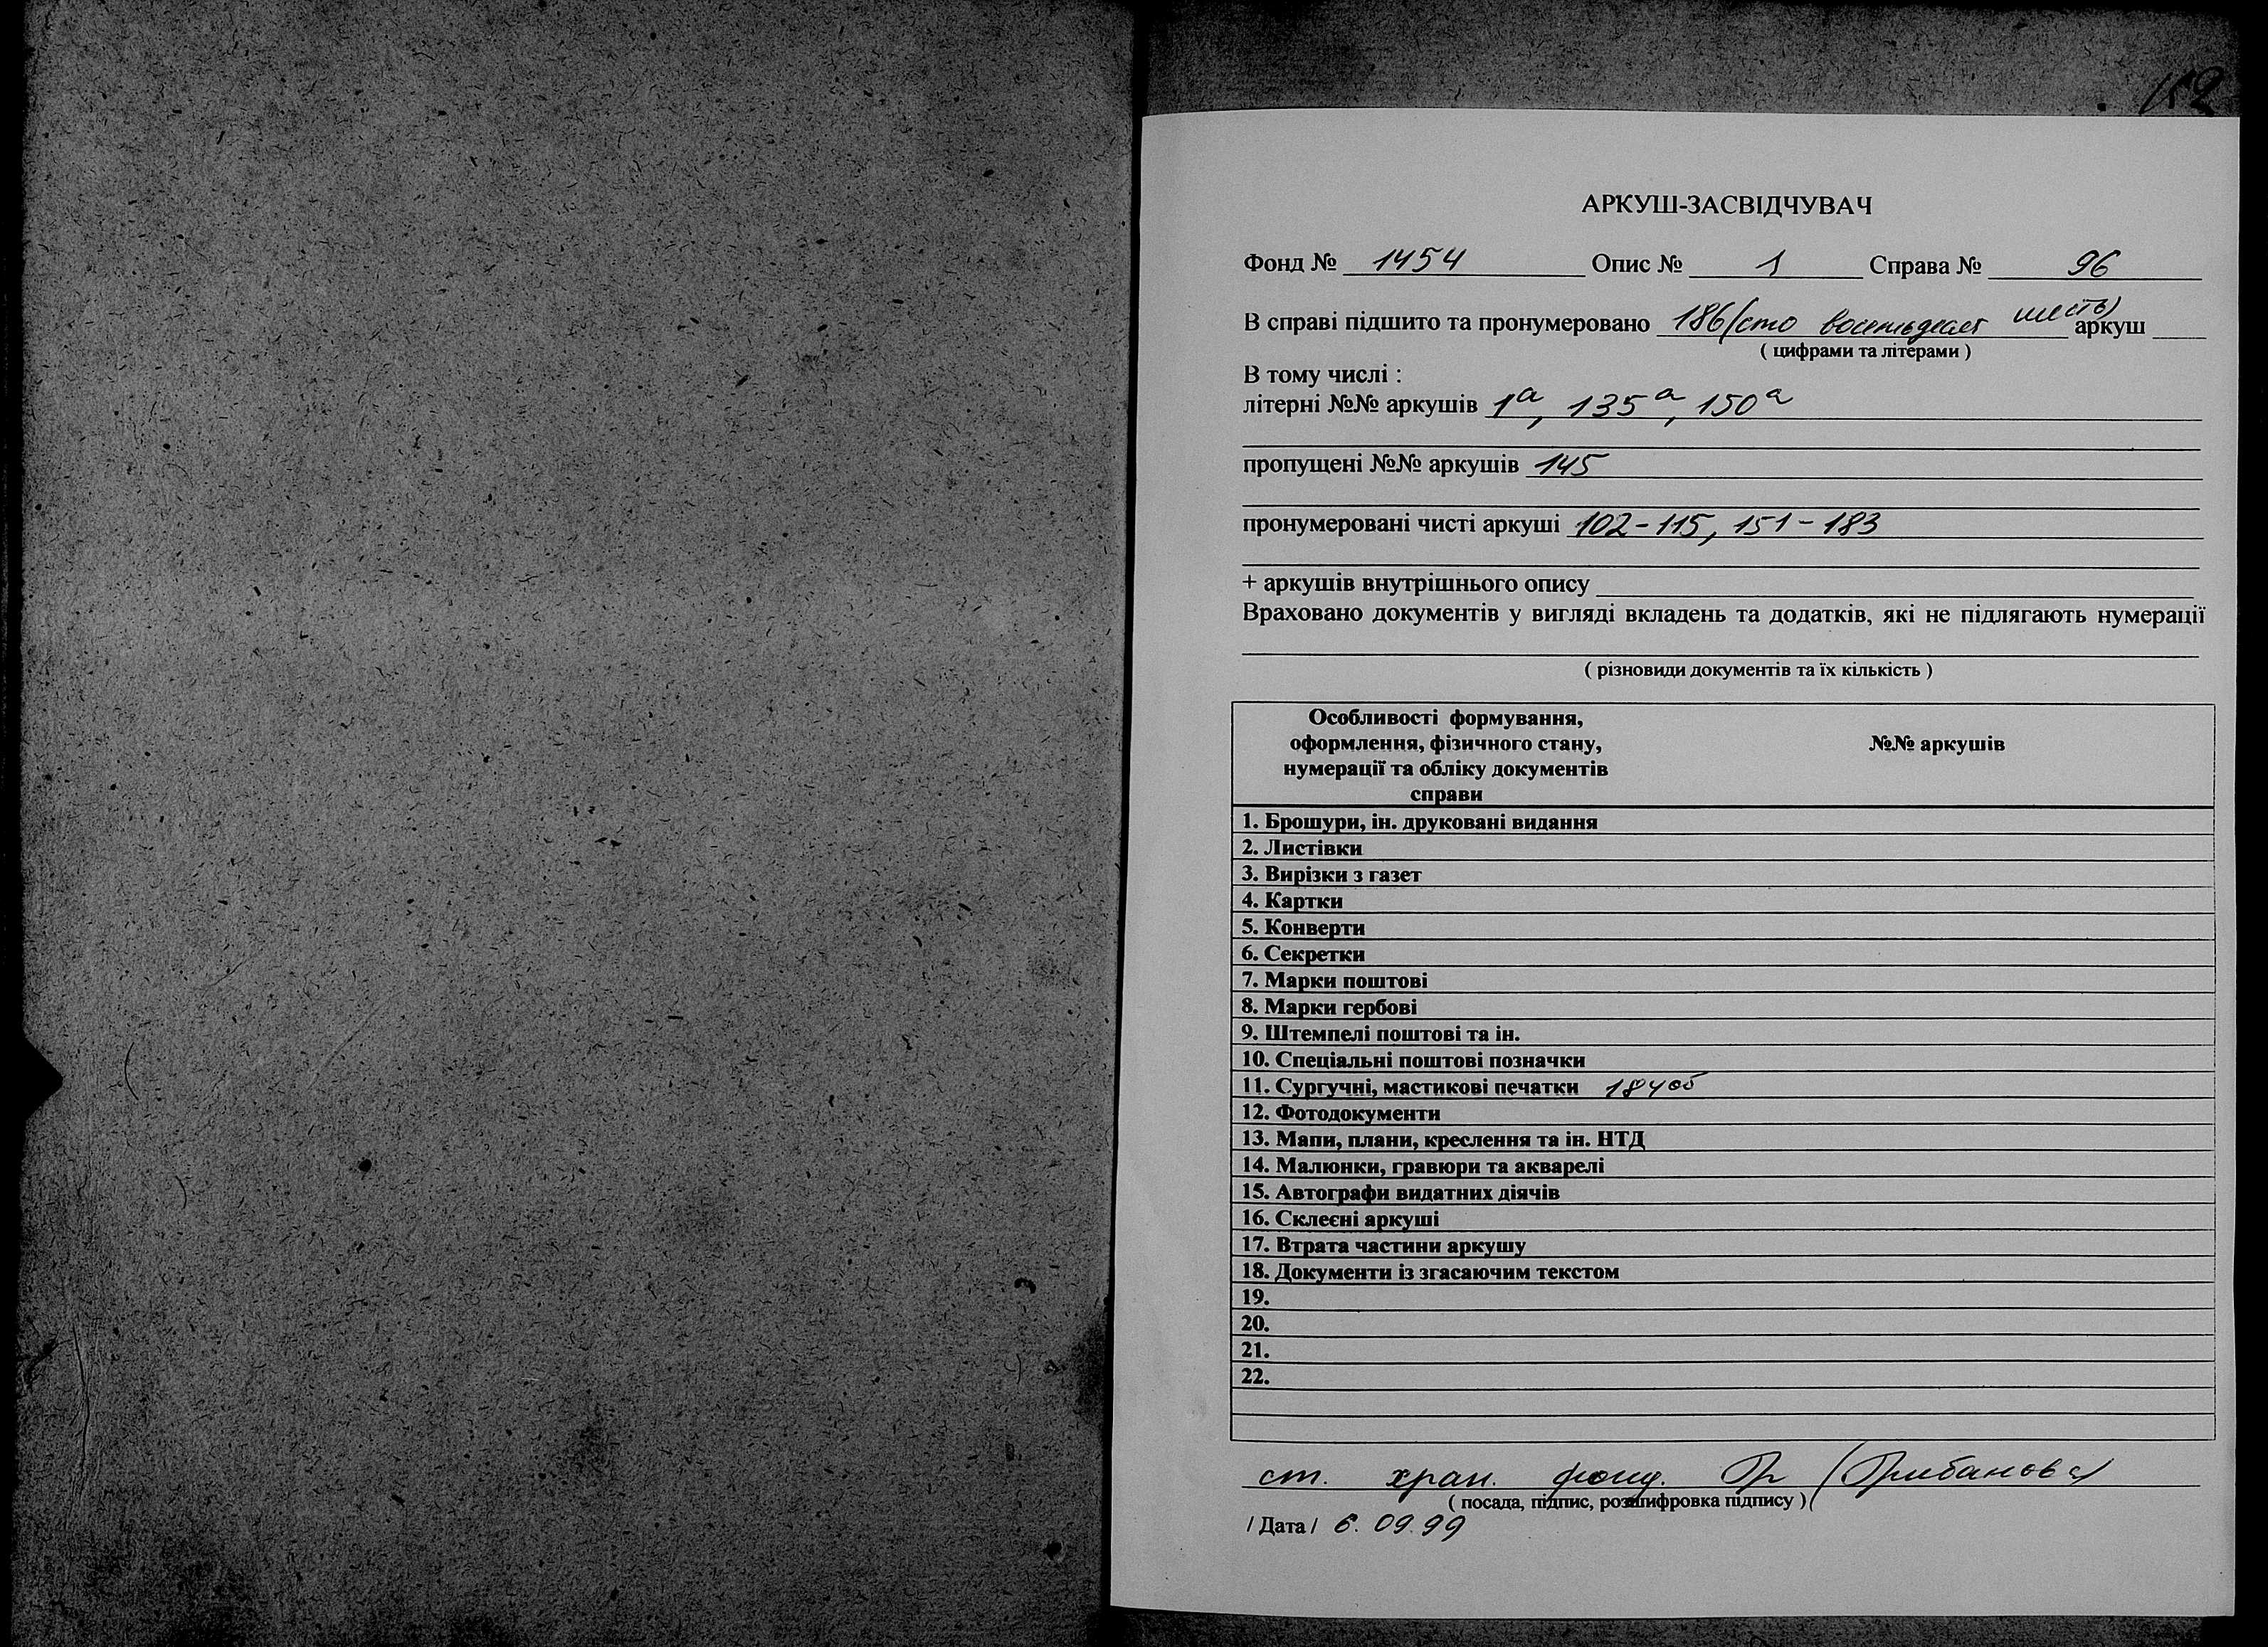 152
АРКУШ-ЗАСВІДЧУВАЧ
Фонд № 1454 Опис № 1 Справа № 96
В справі підшито та пронумеровано 186 (сто восемьдесят шесть) аркуш
( цифрами та літерами )
В тому числі :
літерні №№ аркушів 1а, 135а, 150а
пропущені №№ аркушів 145
пронумеровані чисті аркуші 102-115, 151-183
+ аркушів внутрішнього опису
Враховано документів у вигляді вкладень та додатків, які не підлягають нумерації
( різновиди документів та їх кількість )
Особливості формування,
оформлення, фізичного стану,
нумерації та обліку документів
справи
№№ аркушів
1. Брошури, ін. друковані видання
2. Листівки
3. Вирізки з газет
4. Картки
5. Конверти
6. Секретки
7. Марки поштові
8. Марки гербові
9. Штемпелі поштові та ін.
10. Спеціальні поштові позначки
11. Сургучні, мастикові печатки 184об
12. Фотодокументи
13. Мапи, плани, креслення та ін. НТД
14. Малюнки, гравюри та акварелі
15. Автографи видатних діячів
16. Склеєні аркуші
17. Втрата частини аркушу
18. Документи із згасаючим текстом
19.
20.
21.
22.
ст. хран. фонд. Гр (Грибанова)
( посада, підпис, розшифровка підпису )
/ Дата / 6. 09. 99